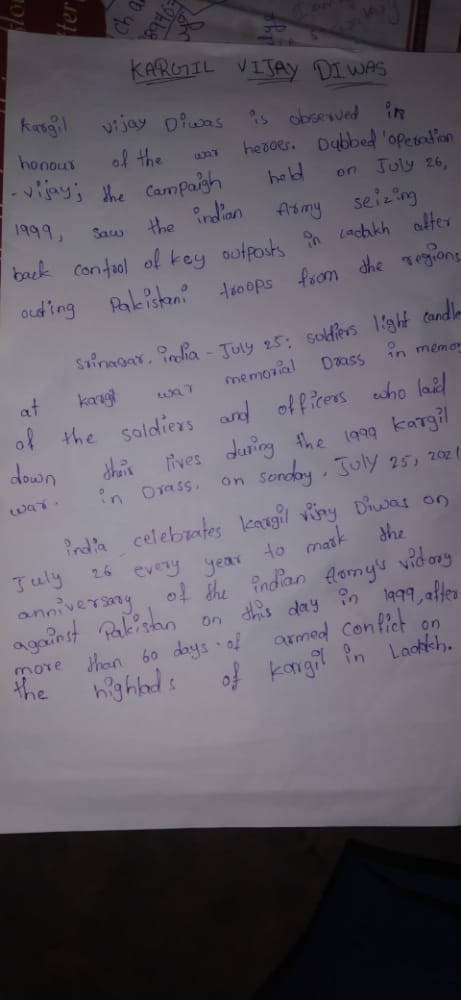 Ch a
89767
KARGIL VIJAY DIWAS
Kargil vijay Diwas is observed in
honour of the war heroes. Dubbed 'operation
-vijay; the campaigh held on July 26,
1999, saw the indian Army seizing
back control of key outposts in ladakh after
outing Pakistani troops from the regions
Srinagar. india - July 25: soldiers light candle
at kargil war memorial Drass in memor
of the soldiers and officers who laid
down their lives during the 1999 Kargil
war. in Drass. on sonday. July 25, 2021
india celebrates kargil vijay Diwas on
July 26 every year to mark the
anniversary of the indian Army's victory
against Pakistan on this day in 1999, after
more than 60 days of armed confict on
the highlads of kargil in Ladakh.